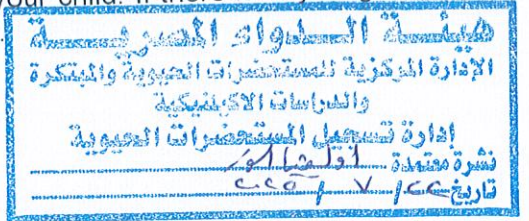 your child. If there
هيئة الدواء المصرية
الإدارة المركزية للمستحضرات الحيوية والمبتكرة
والدراسات الاكلينيكية
إدارة تسجيل المستحضرات الحيوية
نشرة معتمدة
تاريخ ٢٢ / ٧ / ٢٠٢٥